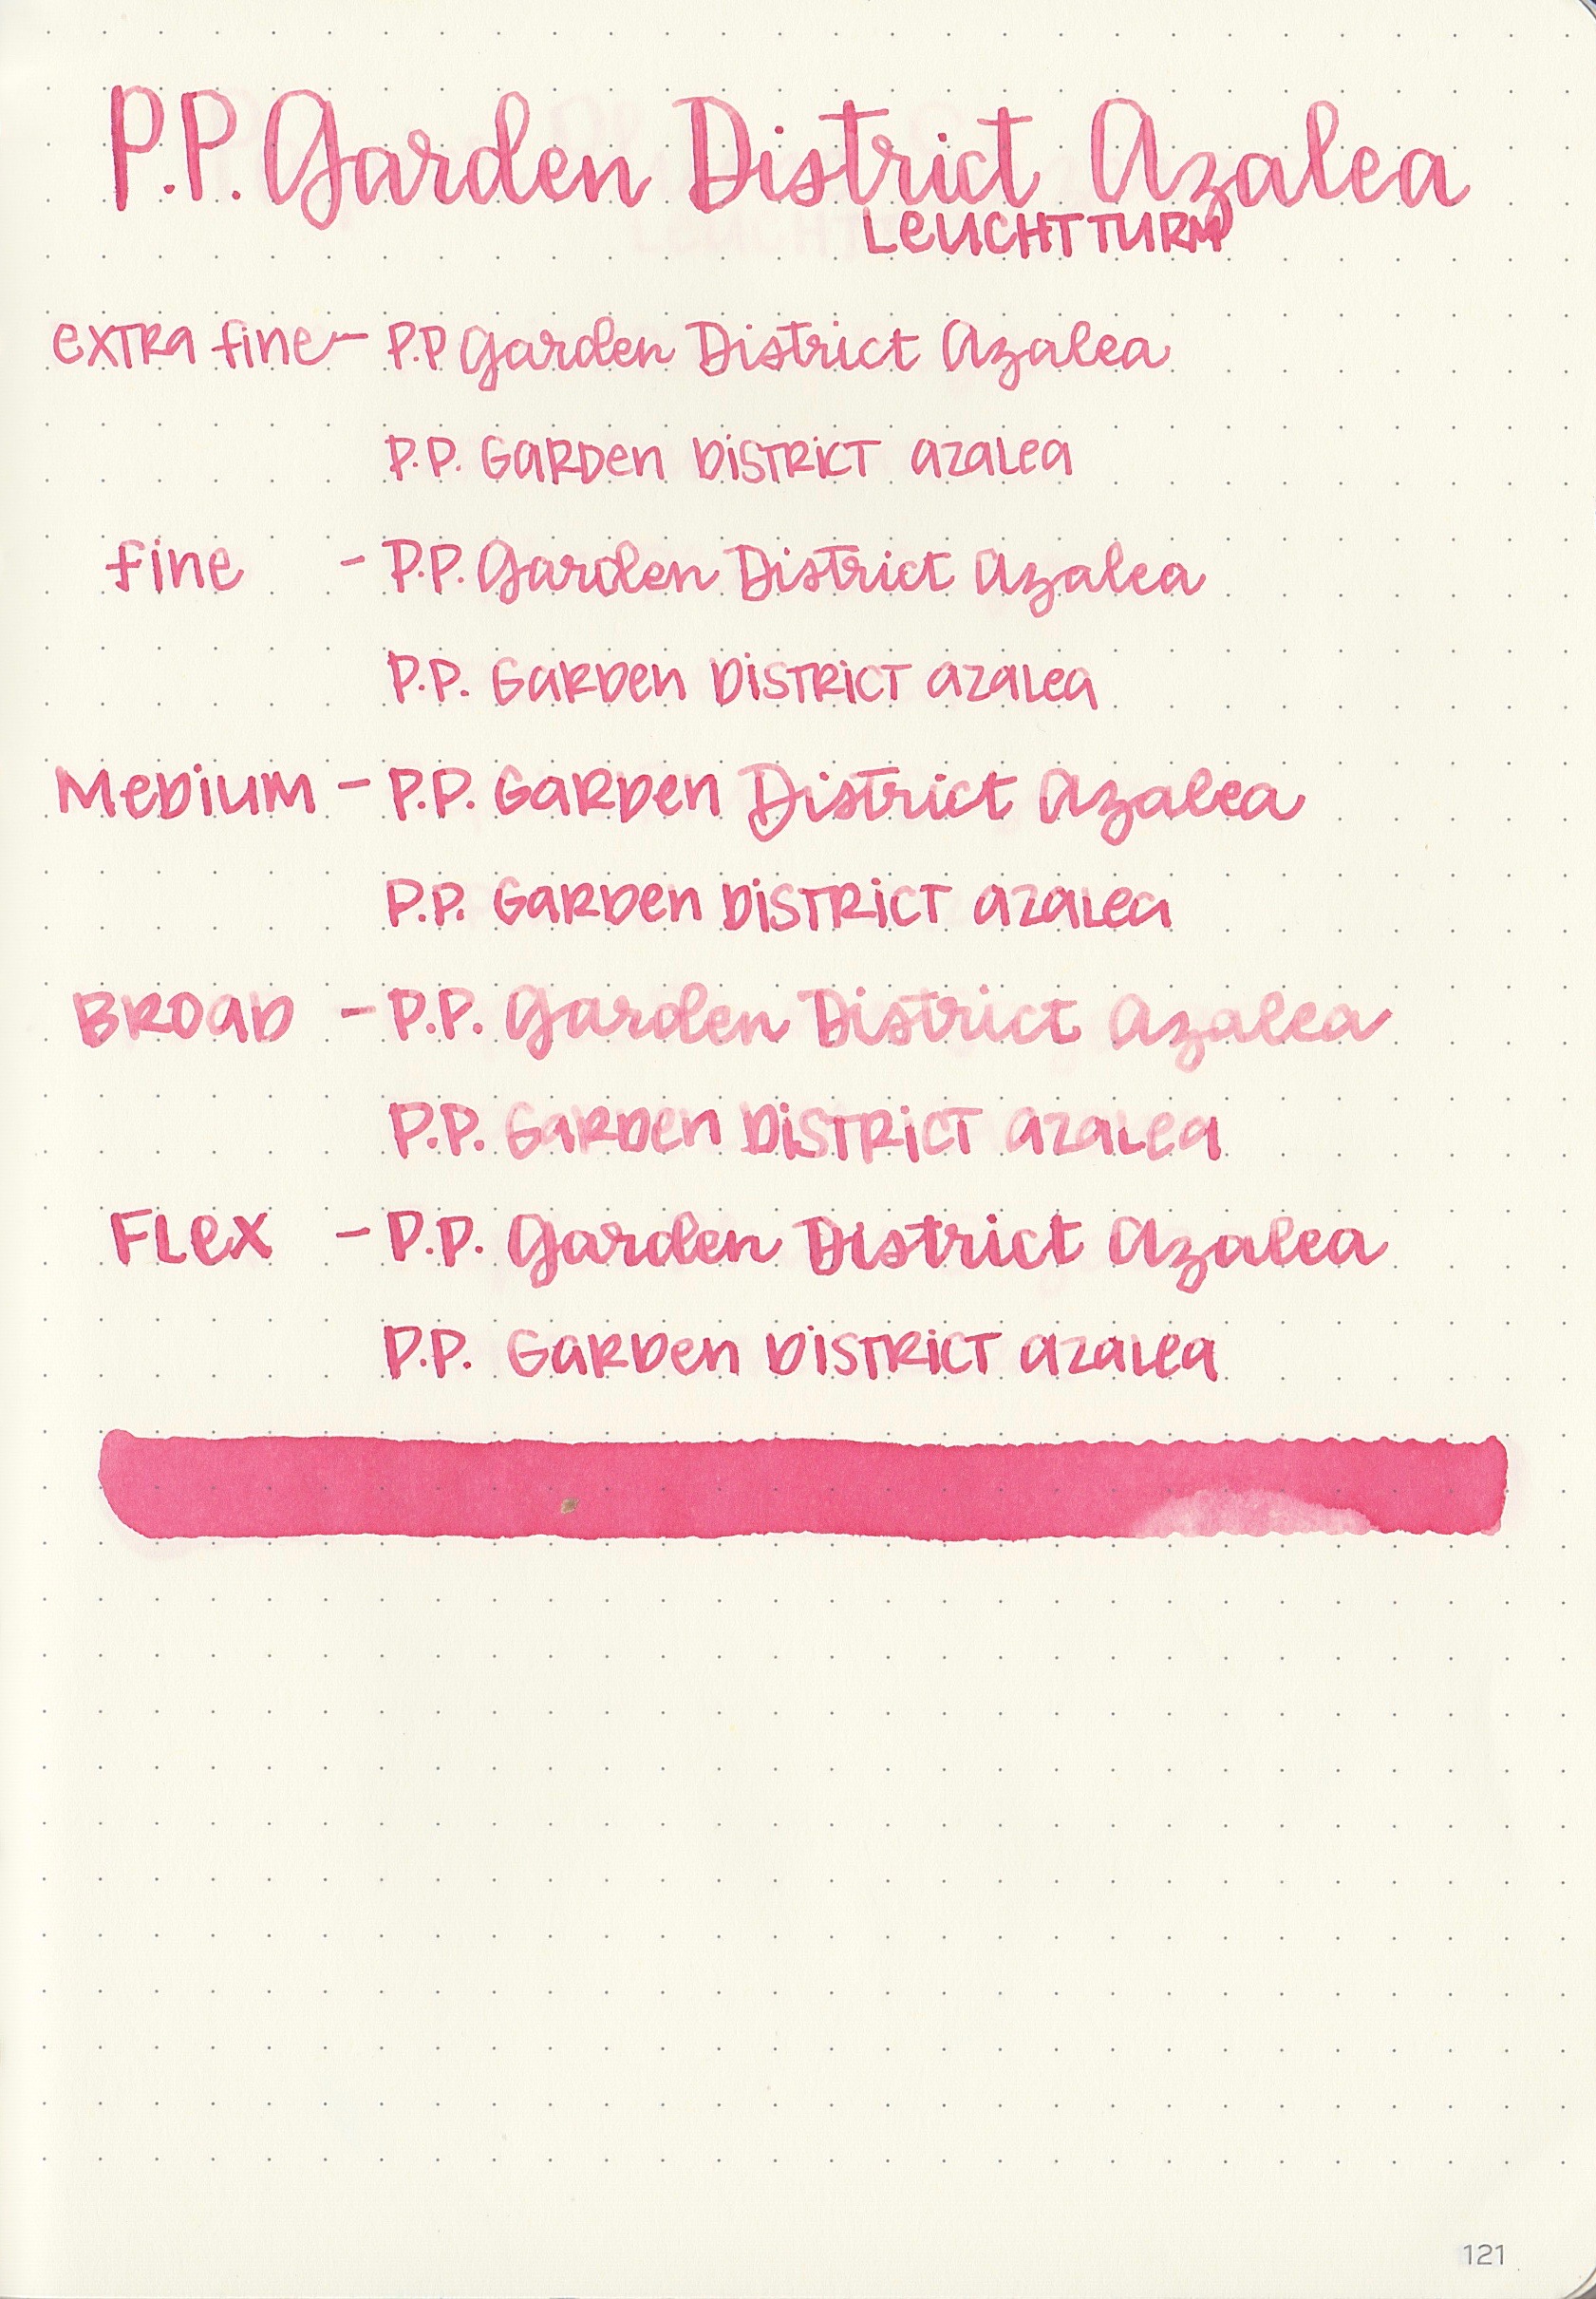 P.P. Garden District Azalea
LeUCHTTURM
exTRa fine - P.P Garden District Azalea
P.P. GaRDen DiSTRiCT azaLea
fine - P.P. Garden District Azalea
P.P. GaRDen DiSTRiCT azaLea
MeDiUM - P.P. GaRDen District Azalea
P.P. GaRDen DiSTRiCT azaLea
BROaD - P.P. Garden District Azalea
P.P. GaRDen DiSTRiCT azaLea
FLex - P.P. Garden District Azalea
P.P. GaRDen DiSTRiCT azaLea
121